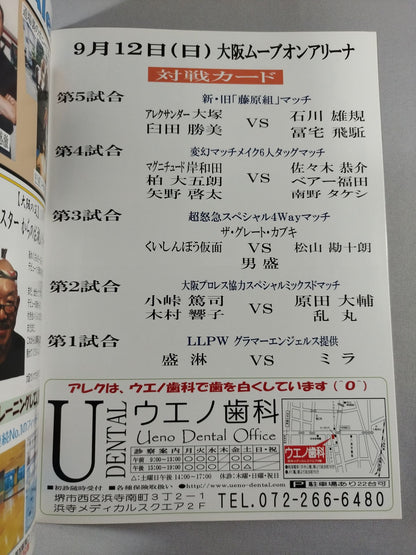 9月12日(日) 大阪ムーブオンアリーナ
対戦カード
第5試合 新・旧「藤原組」マッチ
アレクサンダー 大塚 VS 石川 雄規
臼田 勝美 冨宅 飛駈
第4試合 変幻マッチメイク6人タッグマッチ
マグニチュード 岸和田 佐々木 恭介
柏 大五朗 VS ベアー福田
矢野 啓太 南野 タケシ
第3試合 超怒急スペシャル4Wayマッチ
ザ・グレート・カブキ
くいしんぼう仮面 VS 松山 勘十朗
男 盛
第2試合 大阪プロレス協力スペシャルミックスドマッチ
小峠 篤司 VS 原田 大輔
木村 響子 乱 丸
第1試合 LLPW グラマーエンジェルス提供
盛 淋 VS ミ ラ
アレクは、ウエノ歯科で歯を白くしています(^O^)
U DENTAL ウエノ歯科
Ueno Dental Office
診察案内 月 火 水 木 金 土 日・祝
午前 9:00~13:00
午後 15:00~19:00
△:土曜日午後 14:00~17:00 休診:木曜・日曜・祝日
●初診随時受付 ●各種保険取扱い ●http://www.ueno-dental.com
堺市西区浜寺南町3丁2-1
浜寺メディカルスクエア2F
ウエノ歯科
P 駐車場あり22台可
TEL.072-266-6480